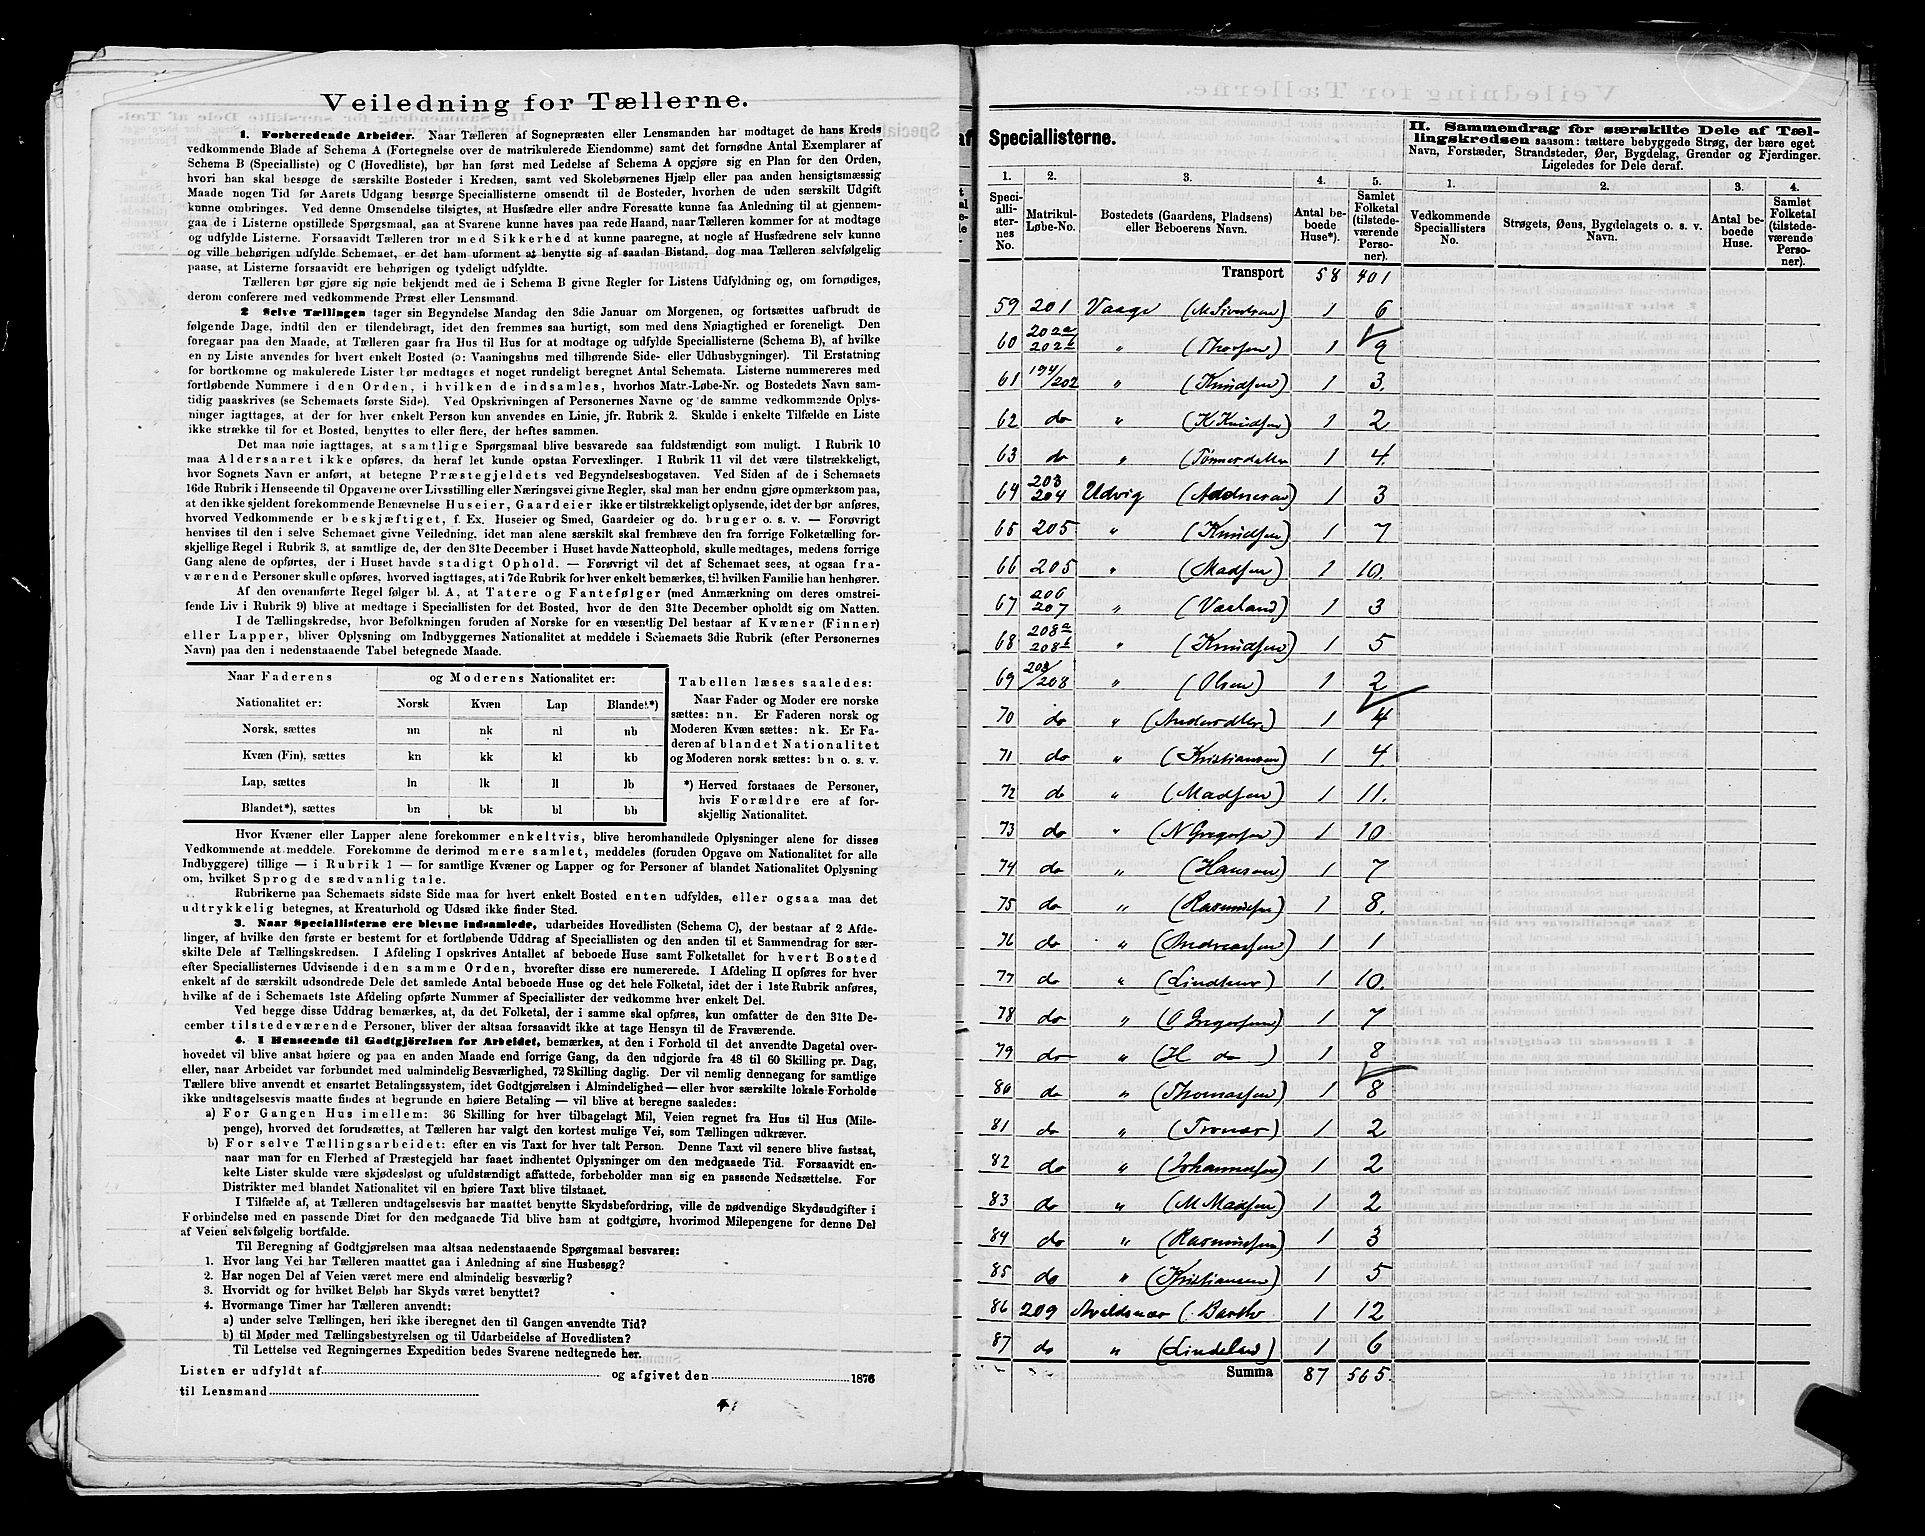 Veiledning for Tællerne.
1. Forberedende Arbeider. Naar Tælleren af Sognepræsten eller Lensmanden har modtaget de hans Kreds
vedkommende Blade af Schema A (Fortegnelse over de matrikulerede Eiendomme) samt det fornødne Antal Exemplarer af
Schema B (Specialliste) og C (Hovedliste), bør han først med Ledelse af Schema A opgjøre sig en Plan for den Orden,
hvori han skal besøge de særskilte Bosteder i Kredsen, samt ved Skolebørnenes Hjælp eller paa anden hensigtsmæssig
Maade nogen Tid før Aarets Udgang besørge Speciallisterne omsendt til de Bosteder, hvorhen de uden særskilt Udgift
kunne ombringes. Ved denne Omsendelse tilsigtes, at Husfædre eller andre Foresatte kunne faa Anledning til at gjennem-
gaa de i Listerne opstillede Spørgsmaal, saa at Svarene kunne haves paa rede Haand, naar Tælleren kommer for at modtage
og udfylde Listerne. Forsaavidt Tælleren tror med Sikkerhed at kunne paaregne, at nogle af Husfædrene selv kunne
og ville behørigen udfylde Schemaet, er det ham uforment at benytte sig af saadan Bistand, dog maa Tælleren selvfølgelig
paase, at Listerne forsaavidt ere behørigen og tydeligt udfyldte.
Tælleren bør gjøre sig nøie bekjendt med de i Schema B givne Regler for Listens Udfyldning og, om fornødiges,
derom conferere med vedkommende Præst eller Lensmand.
2 Selve Tællingen tager sin Begyndelse Mandag den 3die Januar om Morgenen, og fortsættes uafbrudt de
følgende Dage, indtil den er tilendebragt, idet den fremmes saa hurtigt, som med dens Nøiagtighed er foreneligt. Den
foregaar paa den Maade, at Tælleren gaar fra Hus til Hus for at modtage og udfylde Speciallisterne (Schema B), af hvilke
en ny Liste anvendes for hvert enkelt Bosted (ɔ: Vaaningshus med tilhørende Side- eller Udhusbygninger). Til Erstatning
for bortkomne og makulerede Lister bør medtages et noget rundeligt beregnet Antal Schemata. Listerne nummereres med
fortløbende Nummere i den Orden, i hvilken de indsamles, hvorhos Matr.-Løbe-Nr. og Bostedets Navn sam-
tidig paaskrives (se Schemaets første Side). Ved Opskrivningen af Personernes Navne og de samme vedkommende Oplys-
ninger iagttages, at der for hver enkelt Person kun anvendes en Linie, jfr. Rubrik 2. Skulde i enkelte Tilfælde en Liste
ikke strække til for et Bosted, benyttes to eller flere, der heftes sammen.
Det maa nøie iagttages, at samtlige Spørgsmaal blive besvarede saa fuldstændigt som muligt. I Rubrik 10
maa Aldersaaret ikke opføres, da heraf let kunde opstaa Forvexlinger. I Rubrik 11 vil det være tilstrækkeligt,
hvor Sognets Navn er anført, at betegne Præstegjeldets ved Begyndelsesbogstaven. Ved Siden af de i Schemaets
16de Rubrik i Henseende til Opgaverne over Livsstilling eller Næringsvei givne Regler, skal man her endnu gjøre opmærksom paa,
at den ikke sjeldent forekommende Benævnelse Huseier, Gaardeier ikke er tilstrækkeligt oplysende, idet der bør anføres,
hvorved Vedkommende er beskjæftiget, f. Ex. Huseier og Smed, Gaardeier og do. bruger o. s. v. — Forøvrigt
henvises til den i selve Schemaet givne Veiledning, idet man alene særskilt skal fremhæve den fra forrige Folketælling for-
skjellige Regel i Rubrik 3, at samtlige de, der den 31te December i Huset havde Natteophold, skulle medtages, medens forrige
Gang alene de opførtes, der i Huset havde stadigt Ophold. — Forøvrigt vil det af Schemaet sees, at ogsaa fra-
værende Personer skulle opføres, hvorved iagttages, at i 7de Rubrik for hver enkelt bemærkes, til hvilken Familie han henhører.
Af den ovenanførte Regel følger bl. A., at Tatere og Fantefølger (med Anmærkning om deres omstrei-
fende Liv i Rubrik 9) blive at medtage i Speciallisten for det Bosted, hvor de den 31te December opholdt sig om Natten.
I de Tællingskredse, hvor Befolkningen foruden af Norske for en væsentlig Del bestaar af Kvæner (Finner)
eller Lapper, bliver Oplysning om Indbyggernes Nationalitet at meddele i Schemaets 3die Rubrik (efter Personernes
Navn) paa den i nedenstaaende Tabel betegnede Maade.
Naar Faderens og Moderens Nationalitet er:
Nationalitet er: Norsk Kvæn Lap Blandet*)
Norsk, sættes nn nk nl nb
Kvæn (Fin), sættes kn kk kl kb
Lap, sættes ln lk ll lb
Blandet*), sættes bn bk bl bb
Tabellen læses saaledes:
Naar Fader og Moder ere norske
sættes: nn. Er Faderen norsk og
Moderen Kvæn sættes: nk. Er Fa-
deren af blandet Nationalitet
og Moderen norsk sættes: bn o. s. v.
*) Herved forstaaes de Personer,
hvis Forældre ere af for-
skjellig Nationalitet.
Hvor Kvæner eller Lapper alene forekommer enkeltvis, blive heromhandlede Oplysninger alene for disses
Vedkommende at meddele. Forekomme de derimod mere samlet, meddeles (foruden Opgave om Nationalitet for alle
Indbyggere) tillige — i Rubrik 1 — for samtlige Kvæner og Lapper og for Personer af blandet Nationalitet Oplysning
om, hvilket Sprog de sædvanlig tale.
Rubrikerne paa Schemaets sidste Side maa for hvert enkelt Bosted enten udfyldes, eller ogsaa maa det
udtrykkelig betegnes, at Kreaturhold og Udsæd ikke finder Sted.
3. Naar Speciallisterne ere blevne indsamlede, udarbeides Hovedlisten (Schema C), der bestaar af 2 Afde-
linger, af hvilke den første er bestemt for et fortløbende Uddrag af Speciallisten og den anden til et Sammendrag for sær-
skilte Dele af Tællingskredsen. I Afdeling I opskrives Antallet af beboede Huse samt Folketallet for hvert Bosted
efter Speciallisternes Udvisende i den samme Orden, hvorefter disse ere numererede. I Afdeling II opføres for hver
enkelt af de særskilt udsondrede Dele det samlede Antal beboede Huse og det hele Folketal, idet der i 1ste Rubrik anføres,
hvilke af de i Schemaets 1ste Afdeling opførte Nummer af Speciallister der vedkomme hver enkelt Del.
Ved begge disse Uddrag bemærkes, at, da det Folketal, der i samme skal opføres, kun omfatter de den 31te De-
cember tilstedeværende Personer, bliver der altsaa forsaavidt ikke at tage Hensyn til de Fraværende.
4. I Henseende til Godtgjørelsen for Arbeidet, bemærkes, at den i Forhold til det anvendte Dagetal over-
hovedet vil blive ansat høiere og paa en anden Maade end forrige Gang, da den udgjorde fra 48 til 60 Skilling pr. Dag,
eller, naar Arbeidet var forbundet med ualmindelig Besværlighed, 72 Skilling daglig. Der vil nemlig dennegang for samtlige
Tællere blive anvendt et ensartet Betalingssystem, idet Godtgjørelsen i Almindelighed — eller hvor særskilte lokale Forholde
ikke undtagelsesvis maatte findes at begrunde en høiere Betaling — vil blive at beregne saaledes:
a) For Gangen Hus imellem: 36 Skilling for hver tilbagelagt Mil, Veien regnet fra Hus til Hus (Mile-
penge), hvorved det forudsættes, at Tælleren har valgt den kortest mulige Vei, som Tællingen udkræver.
b) For selve Tællingsarbeidet: efter en vis Taxt for hver talt Person. Denne Taxt vil senere blive fastsat,
naar man for en Flerhed af Præstegjeld har faaet indhentet Oplysninger om den medgaaede Tid. Forsaavidt en-
kelte Lister skulde være skjødesløst og ufuldstændigt affattede, forbeholder man sig en passende Nedsættelse. For
Distrikter med blandet Nationalitet vil en høiere Taxt blive tilstaaet.
I Tilfælde af, at Tælleren undtagelsesvis har maattet benytte Skydsbefordring, ville de nødvendige Skydsudgifter i
Forbindelse med en passende Diæt for den medgaaede Tid blive ham at godtgjøre, hvorimod Milepengene for denne Del
af Veien selvfølgelig bortfalde.
Til Beregning af Godtgjørelsen maa altsaa nedenstaaende Spørgsmaal besvares:
1. Hvor lang Vei har Tælleren maattet gaa i Anledning af sine Husbesøg?
2. Har nogen Del af Veien været mere end almindelig besværlig?
3. Hvorvidt og for hvilket Beløb har Skyds været benyttet?
4. Hvormange Timer har Tælleren anvendt:
a) under selve Tællingen, heri ikke iberegnet den til Gangen anvendte Tid?
b) til Møder med Tællingsbestyrelsen og til Udarbeidelse af Hovedlisten?
Til Lettelse ved Regningernes Expedition bedes Svarene nedtegnede her.
Listen er udfyldt af og afgivet den 1876
til Lensmand
Speciallisterne.
II. Sammendrag for særskilte Dele af Tæl-
lingskredsen saasom: tættere bebyggede Strøg, der bære eget
Navn, Forstæder, Strandsteder, Øer, Bygdelag, Grender og Fjerdinger.
Ligeledes for Dele deraf.
1. 2. 3. 4. 5. 1. 2. 3. 4.
Speci-
allis-
ternes
No.
Matrikul-
Løbe-No.
Bostedets (Gaardens, Pladsens)
eller Beboerens Navn.
Antal be-
boede
Huse*).
Samlet
Folketal
(tilstede-
værende
Perso-
ner).
Vedkommende
Speciallisters
No.
Strøgets, Øens, Bygdelagets o. s. v.
Navn.
Antal be-
boede
Huse.
Samlet
Folketal
(tilstede-
værende
Perso-
ner).
Transport 58 401
59 201 Vaage 1 6
60 202a 202b " (Thorsen) 1 9
61 194/202 " (Knudsen) 1 3.
62 do " (K Knudsen) 1 2
63 do " 1 4.
64 203 204 Udvig 1 3
65 205 " (Knudsen) 1 7
66 205 " (Madsen) 1 10.
67 206 207 " (Varland) 1 3
68 208a 208b " (Knudsen) 1 5
69 203/208 " (Olsen) 1 2
70 do " 1 4
71 do " (Kristiansen) 1 4
72 do " (Madsen) 1 11.
73 do " (N Gregersen) 1 10
74 do " (Hansen) 1 7
75 do " (Rasmussen) 1 8.
76 do " (Andreassen) 1 1
77 do " 1 10.
78 do " (O Gregersen) 1 7
79 do " (H do) 1 8
80 do " (Thomassen) 1 8
81 do " 1 2
82 do " (Johannesen) 1 2
83 do " (M Madsen) 1 2
84 do " (Rasmussen) 1 3
85 do " (Kristiansen) 1 5
86 209 Avaldsnæs 1 12
87 do " (Lindeland) 1 6
Summa 87 565.